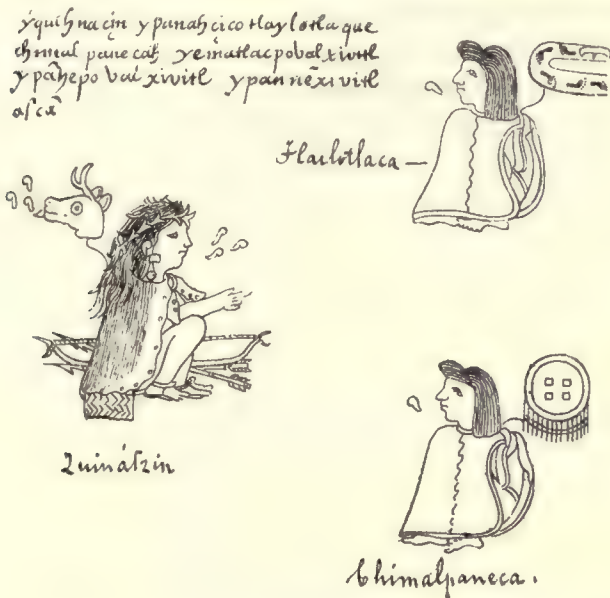 yquihnacin ypanahcico tlaylotla que
chimal panecah yematlacpoval xivitl
ypāhepo val xivitl ypannēxivitl
ascā
Tlailotlaca
Quinátzin
Chimalpaneca.